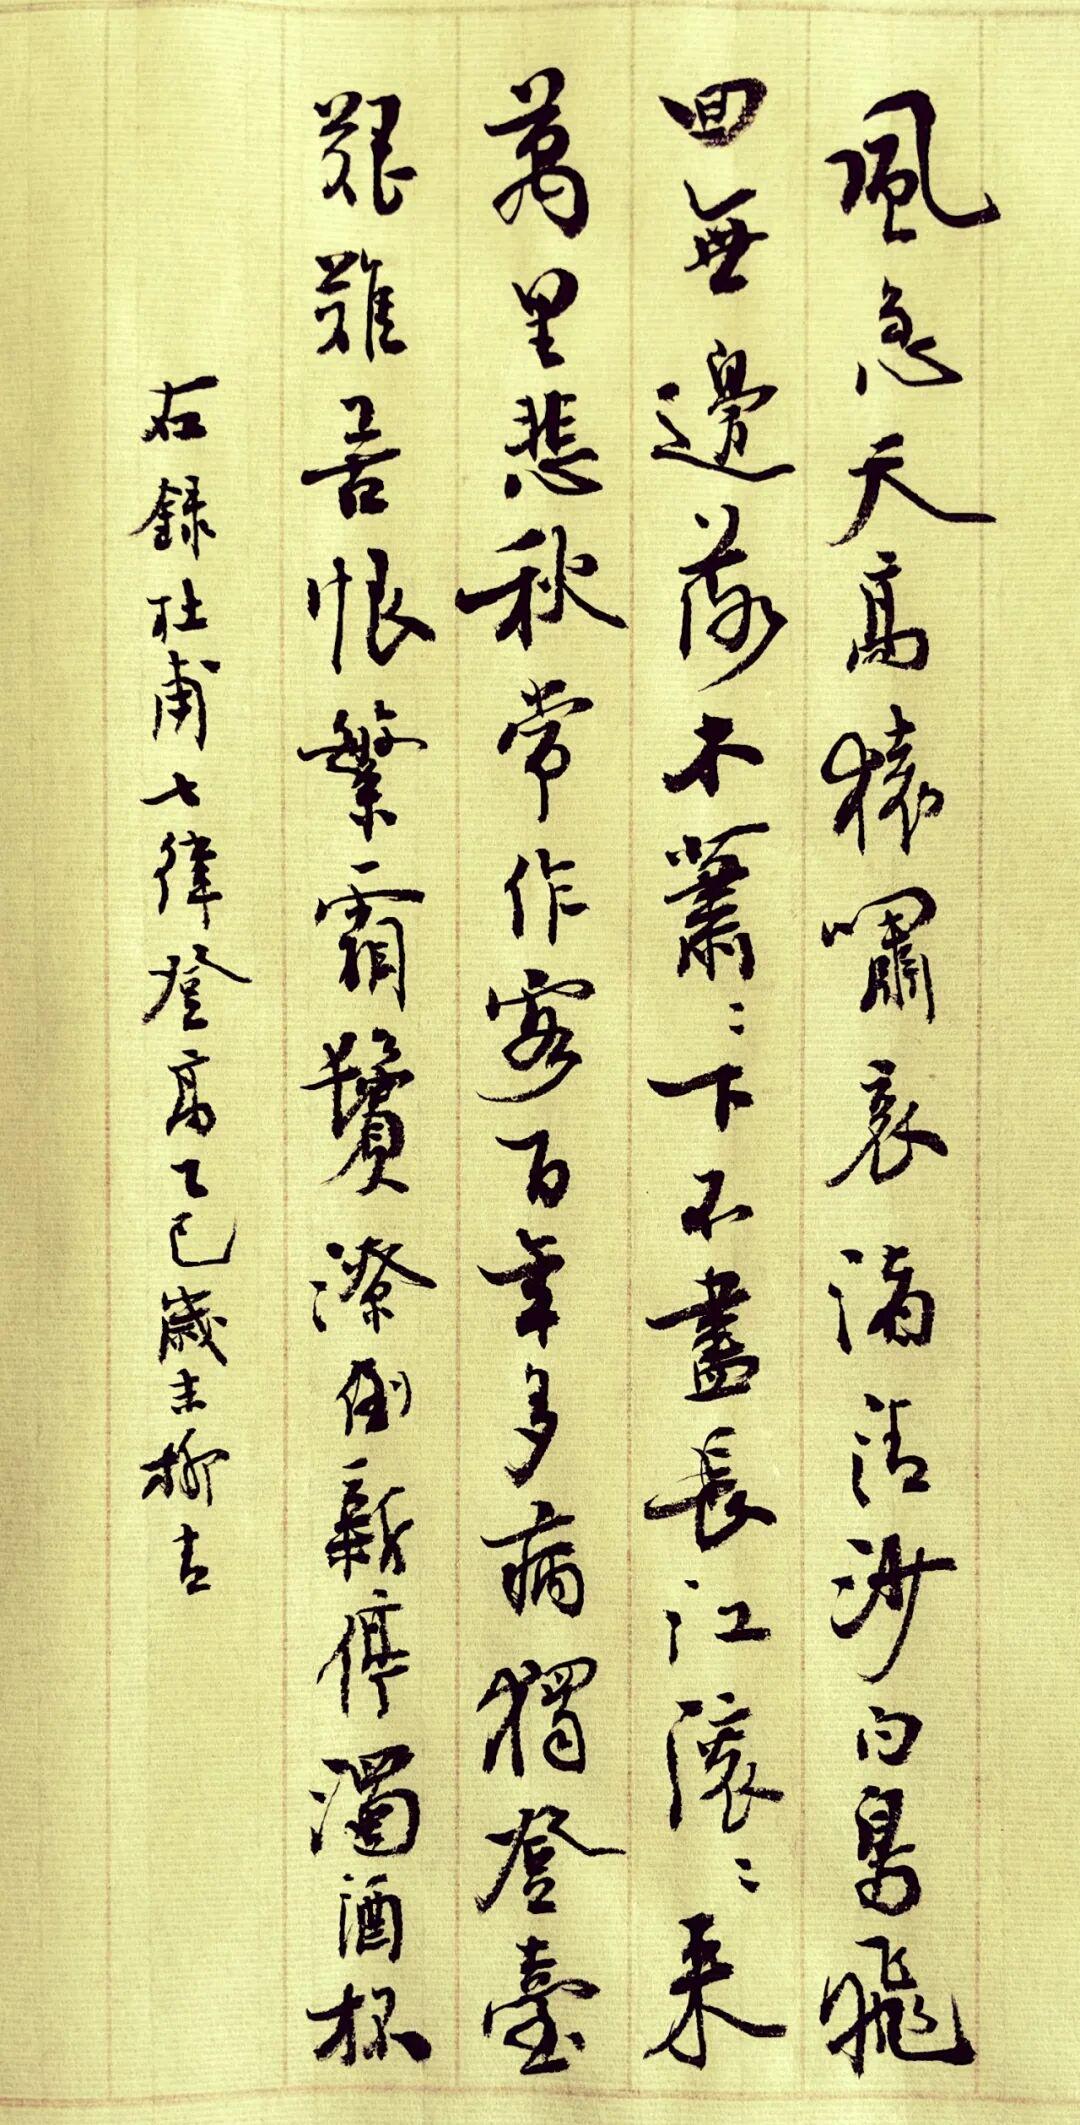 風急天高猿嘯哀渚清沙白鳥飛
回無邊落木蕭〻下不盡長江滾〻来
萬里悲秋常作客百年多病獨登臺
艱難苦恨繁霜鬢潦倒新停濁酒杯
右錄杜甫七律登高乙巳歲末柳吉